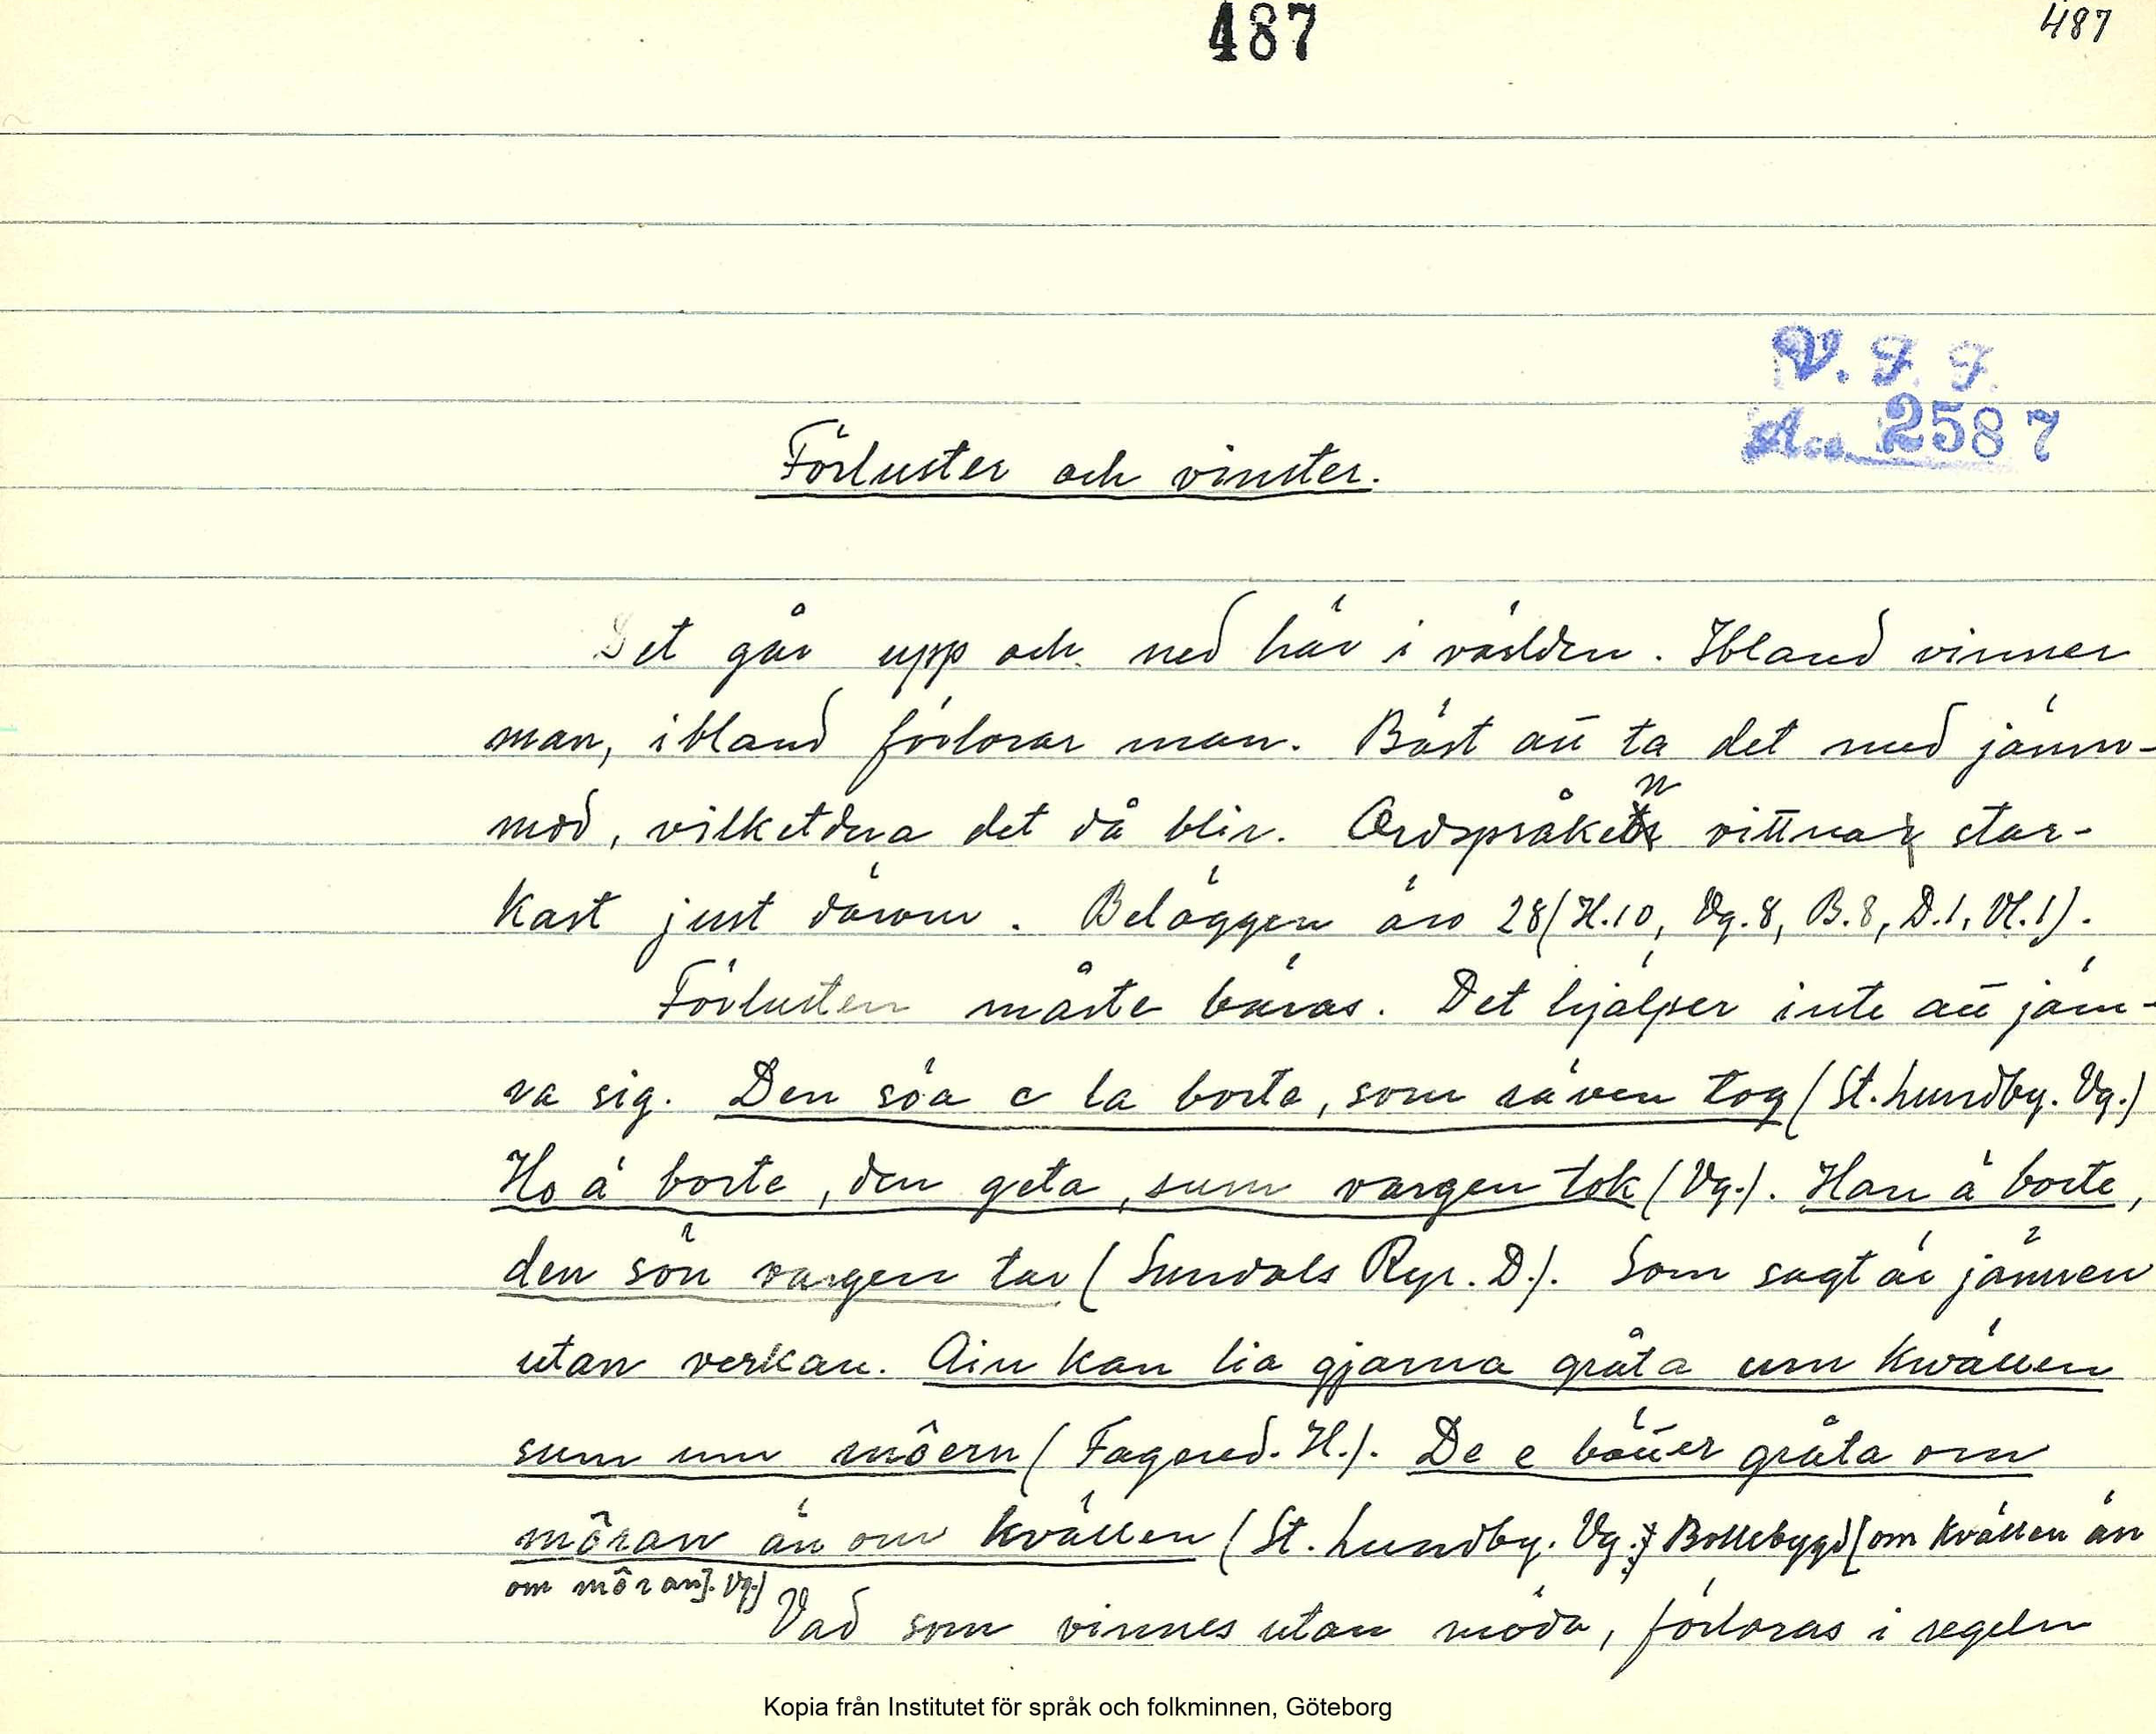 487
487
V. F. F.
Acc. 2587
Förluster och vinster.
Det går upp och ned här i världen. Ibland vinner
man, ibland förlorar man. Bäst att ta det med jämn-
mod, vilketdera det då blir. Ordspråken vittna star-
kast just därom. Beläggen äro 28 (H.10, Vg.8, B.8, D.1, Vl.1).
Förlusten måste bäras. Det hjälper inte att jäm-
ra sig. Den söa e la borta, som räven tog (St. Lundby. Vg.)
Ho ä borte, den geta, sum vargen tok (Vg.). Han ä borte,
den sön vargen tar (Sundals Ryr. D.). Som sagt är jämren
utan verkan. Ain kan lia gjarna gråta um kwällen
sum um môern (Fagered. H.). De e bätter gråta om
môran än om kvällen (St. Lundby. Vg.; Bollebygd [om kvällen än
om môran]. Vg.)
Vad som vinnes utan möda, förloras i regeln
Kopia från Institutet för språk och folkminnen, Göteborg